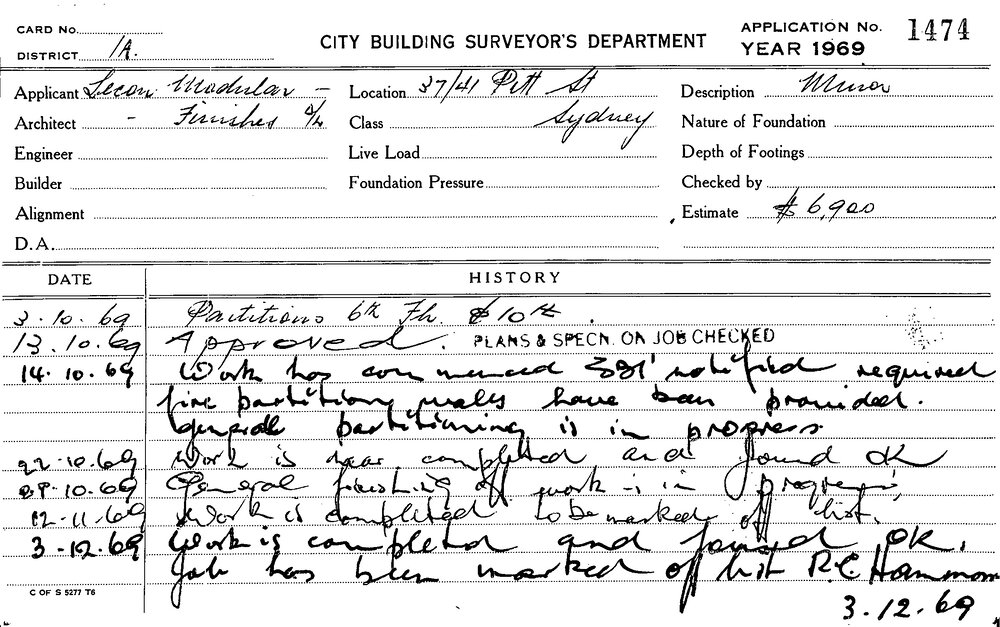 CARD No.
DISTRICT 1A.
CITY BUILDING SURVEYOR'S DEPARTMENT
APPLICATION No. 1474
YEAR 1969
Applicant Lecon Modular -
Location 37/41 Pitt St
Description Minor
Architect - Finishes
Class Sydney
Nature of Foundation
Engineer
Live Load
Depth of Footings
Builder
Foundation Pressure
Checked by
Alignment
Estimate $6,900
D.A.
DATE
HISTORY
3.10.69 Partitions 6th Flr. & 10th.
13.10.69 Approved. PLANS & SPECN. ON JOB CHECKED
14.10.69 Work has commenced notified required
fire partition walls have been provided.
General partitioning is in progress
22.10.69 Work is near completed and found OK
.10.69 General finishing off work is in progress
12.11.69 Work is completed to be marked off list.
3.12.69 Work is completed and found OK.
Job has been marked off list R.C Hammom
C OF S 5277 T6
3.12.69